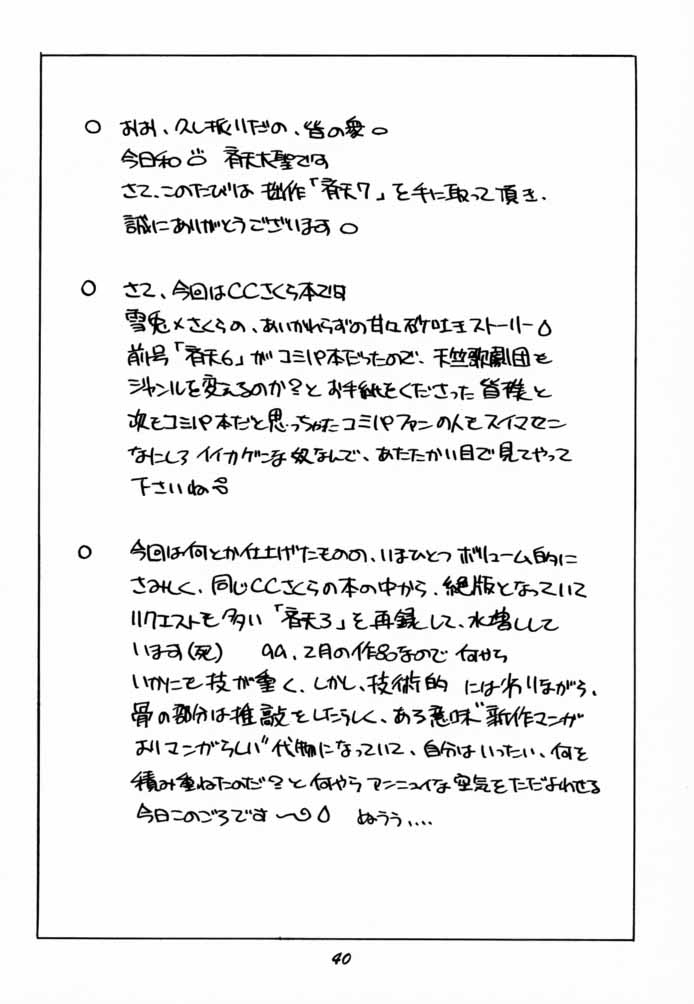 ○ おお、久し振りだの、皆の衆。
今日和 斉天大聖です
さて、このたびは 拙作「斉天7」を手に取って頂き、
誠にありがとうございます。
○ さて、今回はCCさくら本です
雪兎×さくらの、あいかわらずの甘々砂吐きストーリー
前号「斉天6」がコミパ本だったので、天竺歌劇団も
ジャンルを変えるのか?と お手紙をくださった皆様と
次もコミパ本だと思っちゃたコミパファンの人もスイマセン
なにしろ イイカゲンな奴なんで、あたたかい目で見てやって
下さいね
○ 今回は何とか仕上げたものの、いまひとつ ボリューム的に
さみしく、同じCCさくらの本の中から、絶版となっていて
リクエストも多い「斉天3」を再録して、水増しして
います(死) 99、2月の作品なので 何やら
いかにも技が重く、しかし、技術的 には劣りながら、
骨の部分は推敲をしたらしく、ある意味"新作マンガ
よりマンガらしい"代物になっていて、自分はいったい、何を
積み重ねたのだ?と何やら アンニュイな空気をただよわせる
今日このごろです〜 ぬうう、...
40